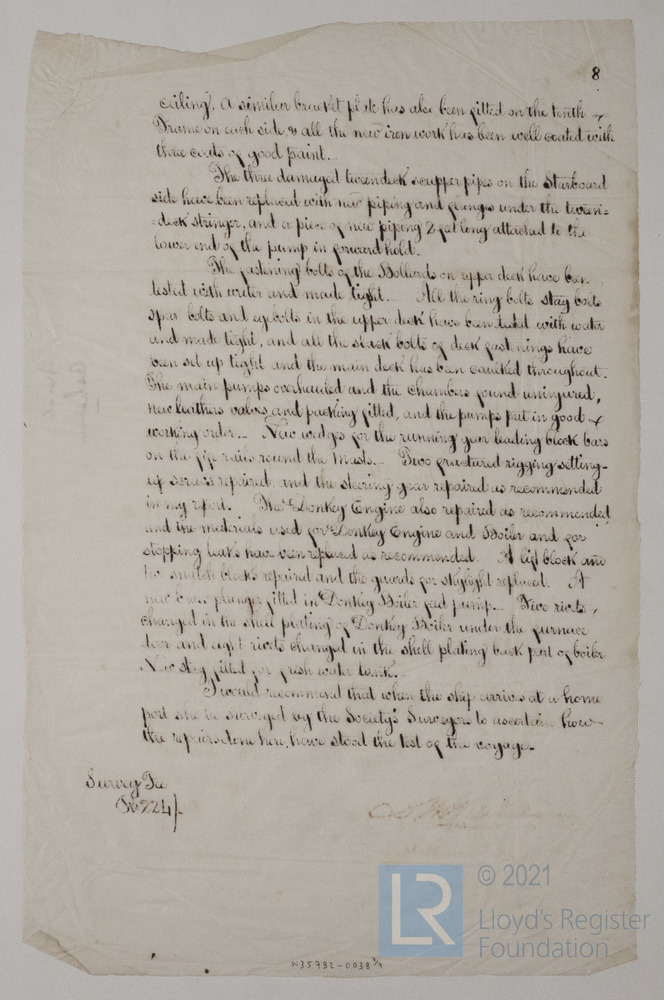 8
ceiling. A similar bracket plate has also been fitted on the tenth
Frame on each side & all the new iron work has been well coated with
three coats of good paint.
The three damaged tweendeck scupper pipes on the Starboard
side have been replaced with new piping and flanges under the tween=
=deck stringer, and a piece of new piping 2 feet long attached to the
lower end of the pump in forward hold.
The fastening bolts of the Bollards on upper deck have been
tested with water and made tight. All the ring bolts stay bolts
spar bolts and eyebolts in the upper deck have been tested with water
and made tight, and all the slack bolts of deck fastenings have
been set up tight and the main deck has been caulked throughout.
The main pumps overhauled and the chambers found uninjured,
new leathers valves and packing fitted, and the pumps put in good
working order. New wedges for the running gear leading block bars
on the fife rails round the Masts. Two fractured rigging setting-
up screws repaired and the steering gear repaired as recommended
in my report. The Donkey Engine also repaired as recommended
and the materials used for Donkey Engine and Boiler and for
stopping leaks have been replaced as recommended. A lift block and
two snatch blocks repaired and the guards for skylight replaced. A
new brass plunger fitted in Donkey Boiler feed pump. Five rivets
changed in the shell plating of Donkey Boiler under the furnace
door and eight rivets changed in the shell plating back part of boiler
New stay fitted for fresh water tank.
I would recommend that when the ship arrives at a home
port she be surveyed by the Society's Surveyors to ascertain how
the repairs done here, have stood the test of the voyage.
Survey Fee
224/-
LR
© 2021
Lloyd's Register
Foundation
W35732-0038